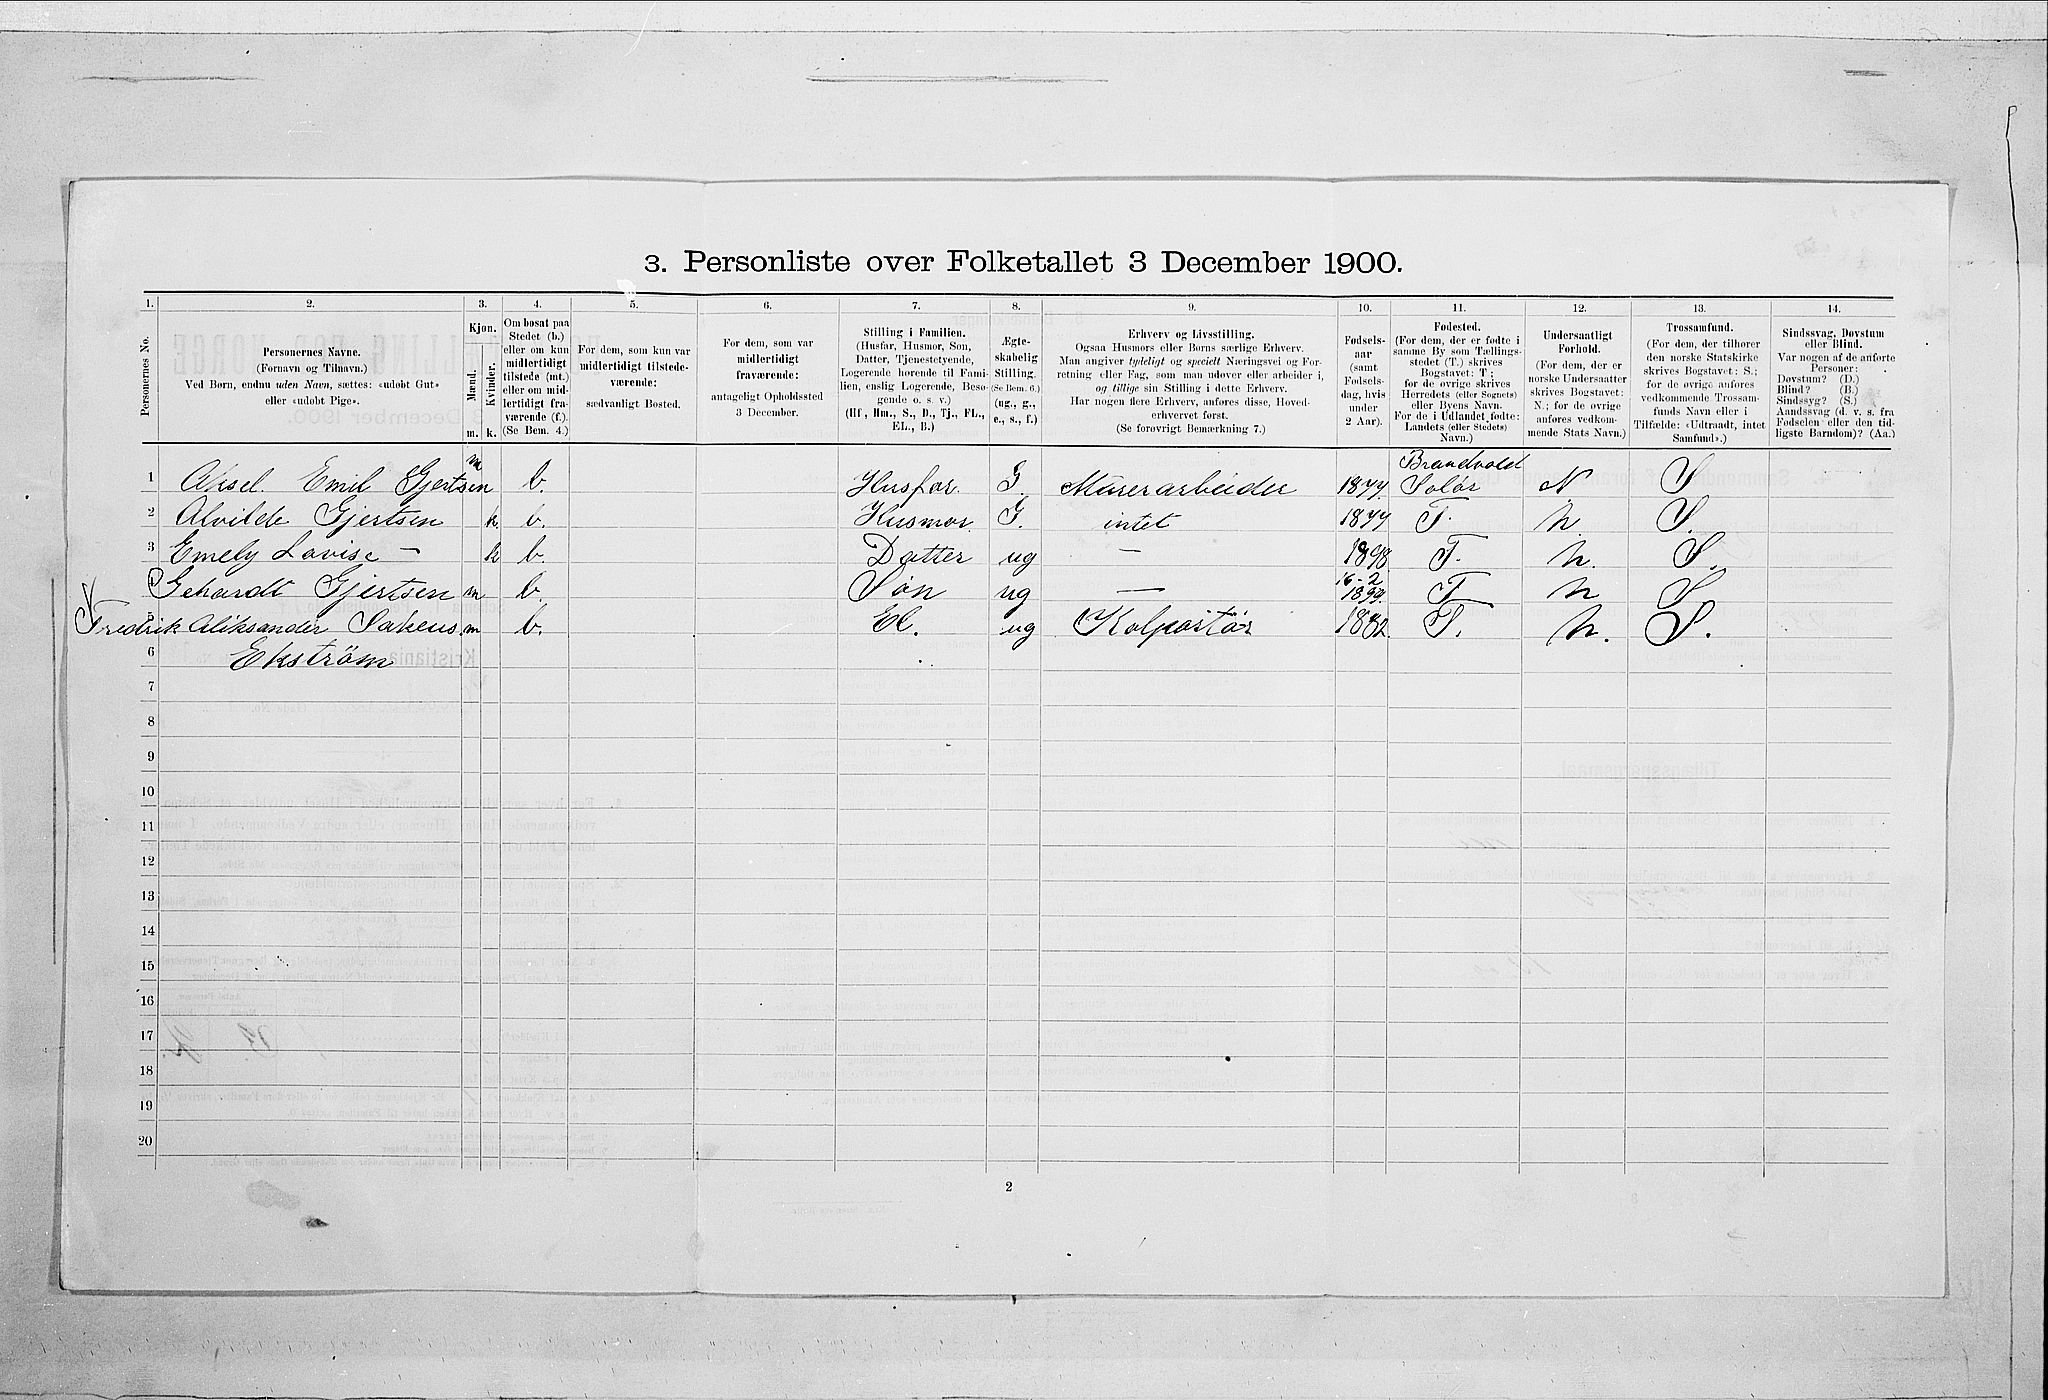 3. Personliste over Folketallet 3 December 1900.
1. 2. 3. 4. 5. 6. 7. 8. 9. 10. 11. 12. 13. 14.
Personernes No.
Personernes Navne.
(Fornavn og Tilnavn.)
Ved Børn, endnu uden Navn, sættes: «udøbt Gut»
eller «udøbt Pige».
Kjøn.
Mænd.
Kvinder.
m. k.
Om bosat paa
Stedet (b.)
eller om kun
midlertidigt
tilstede (mt.)
eller om mid-
lertidigt fra-
værende (f.).
(Se Bem. 4.)
For dem, som kun var
midlertidigt tilstede-
værende:
sædvanligt Bosted.
For dem, som var
midlertidigt
fraværende:
antageligt Opholdssted
3 December.
Stilling i Familien.
(Husfar, Husmor, Søn,
Datter, Tjenestetyende,
Logerende hørende til Fami-
lien, enslig Logerende, Besø-
gende o. s. v.)
(Hf, Hm., S., D., Tj., FL.,
EL., B.)
Ægte-
skabelig
Stilling.
(Se Bem. 6.)
(ug., g.,
e., s., f.)
Erhverv og Livsstilling.
Ogsaa Husmors eller Børns særlige Erhverv.
Man angiver tydeligt og specielt Næringsvei og For-
retning eller Fag, som man udøver eller arbeider i,
og tillige sin Stilling i dette Erhverv.
Har nogen flere Erhverv, anføres disse, Hoved-
erhvervet først.
(Se forøvrigt Bemærkning 7.)
Fødsels-
aar
(samt
Fødsels-
dag, hvis
under
2 Aar).
Fødested.
(For dem, der er fødte i
samme By som Tællings-
stedet (T.) skrives
Bogstavet: T;
for de øvrige skrives
Herredets (eller Sognets)
eller Byens Navn.
For de i Udlandet fødte:
Landets (eller Stedets)
Navn.)
Undersaatligt
Forhold.
(For dem, der er
norske Undersaatter
skrives Bogstavet:
N.; for de øvrige
anføres vedkom-
mende Stats Navn.)
Trossamfund.
(For dem, der tilhører
den norske Statskirke
skrives Bogstavet: S.;
for de øvrige anføres
vedkommende Trossam-
funds Navn eller i
Tilfælde: «Udtraadt, intet
Samfund».)
Sindssvag, Døvstum
eller Blind.
Var nogen af de anførte
Personer:
Døvstum? (D.)
Blind? (B.)
Sindssyg? (S.)
Aandssvag (d. v. s. fra
Fødselen eller den tid-
ligste Barndom)? (Aa.)
1 Aksel. Emil Gjertsen m b. Husfar. G. Murerarbeider 1877 Brandvold Solør N S
2 Alvilde Gjertsen k. b. Husmor G. intet 1877 T. n S.
3 Emely Lovise — k b. Datter ug — 1898 T. n. S.
4 Gehardt Gjertsen m b. Søn ug — 16-2 1899. T n S
5 Fredrik Aliksander m b. El. ug Kolportør 1882 T. n. S.
6 Ekström
7
8
9
10
11
12
13
14
15
16
17
18
19
20
2